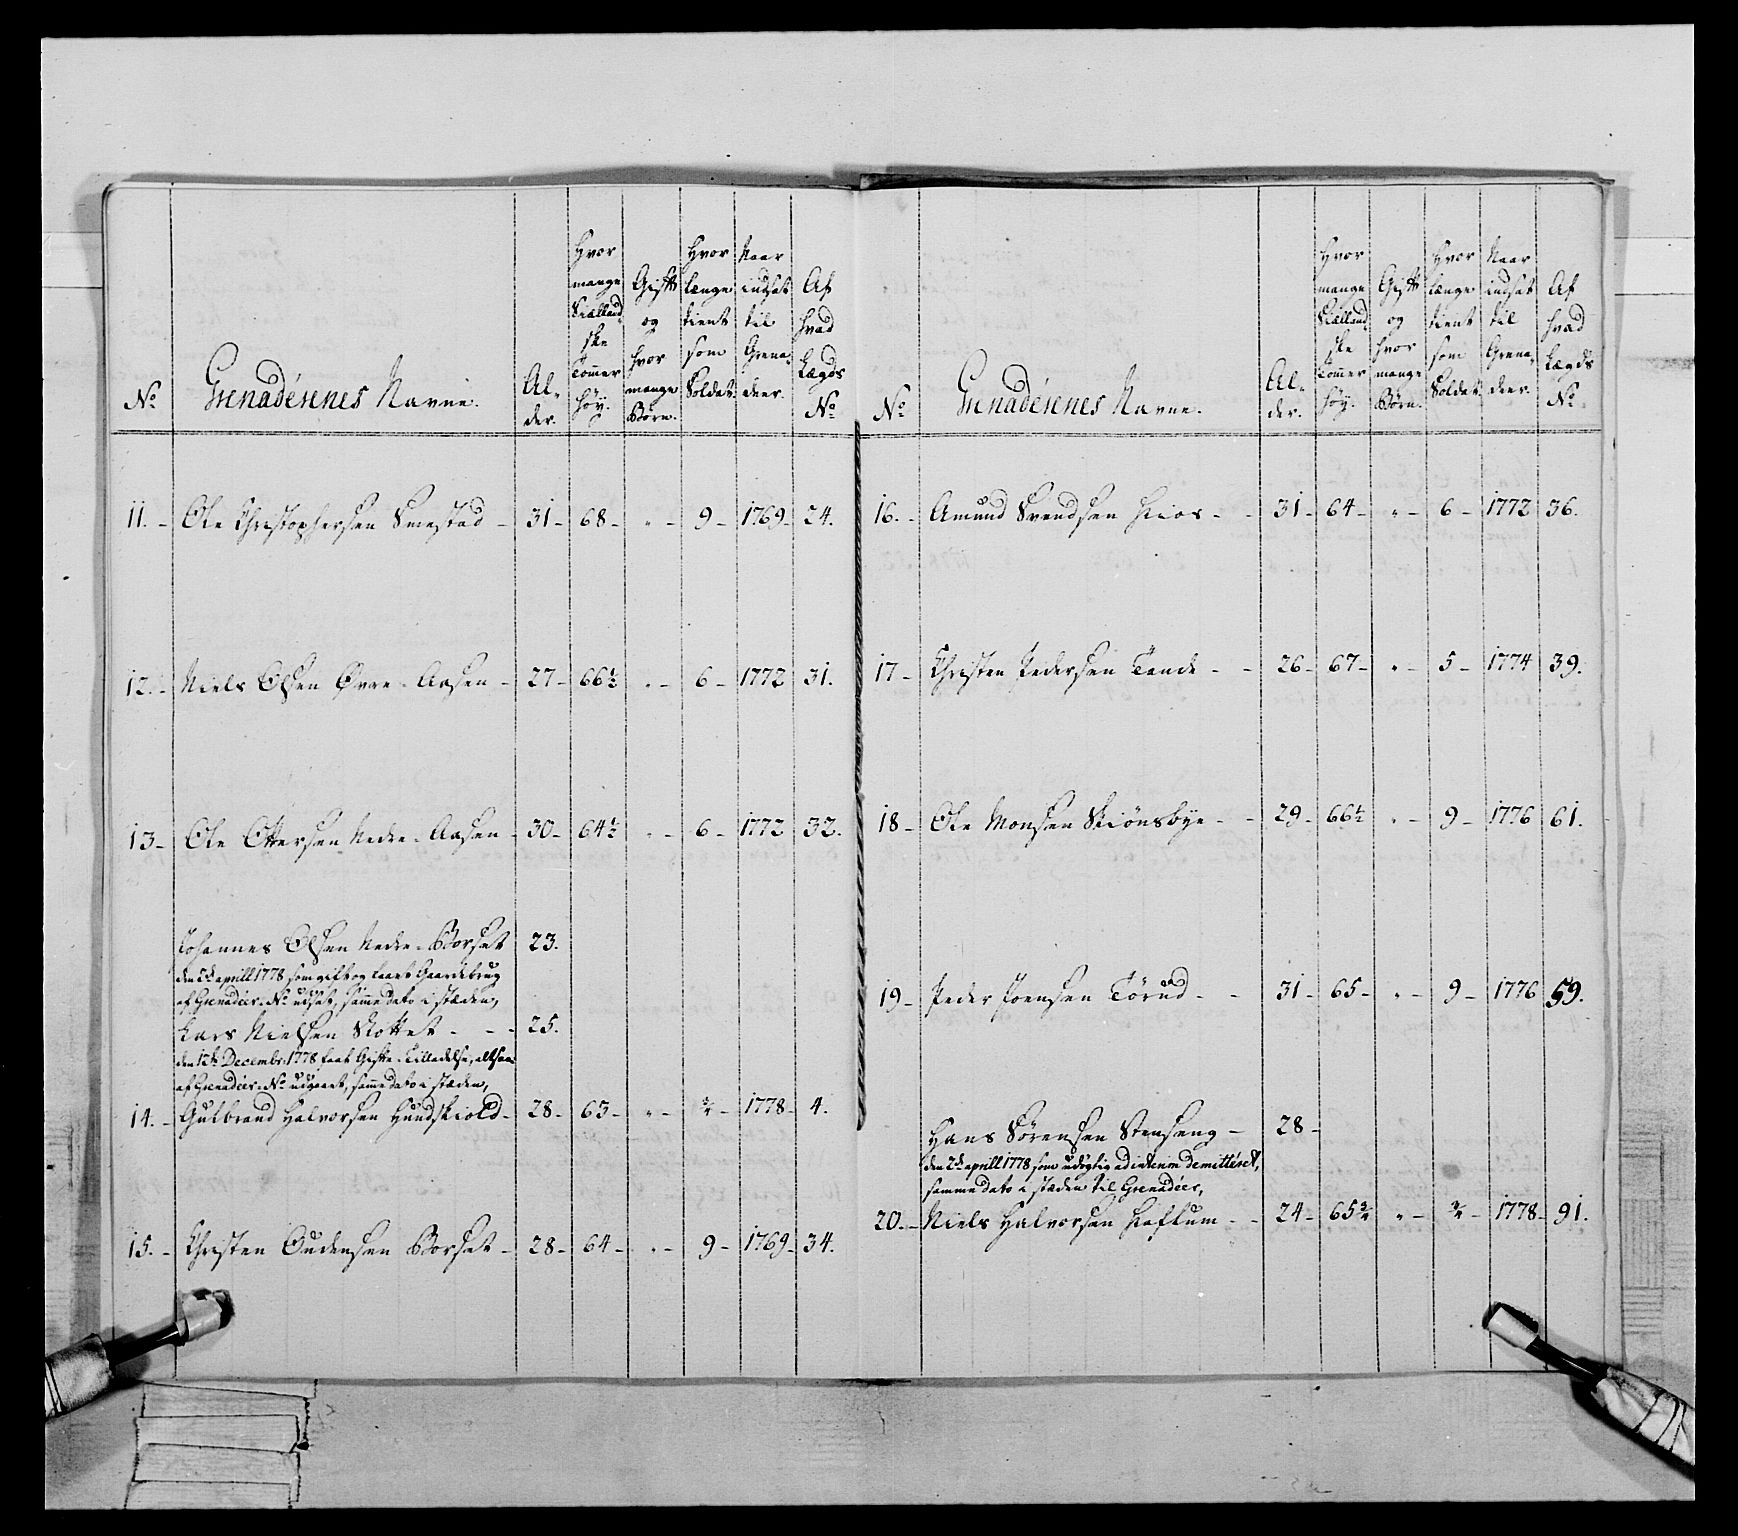 No
Grenadérernes Navne.
Al-
der.
Hvor
mange
Siælland-
ske
Tomer
høy.
Gift
og
hvor
mange
Børn.
Hvor
længe
tient
som
Soldat.
Naar
indsat
til
Grena-
deer.
Af
hvad
Lægds
No
11. - Ole Christophersen Smestad - 31 - 68 - " - 9 - 1769 - 24.
12. - Niels Olsen Øvre-Aasen - 27 - 66½ " - 6 - 1772 31.
13 - Ole Ottersen Nedre-Aasen - 30 - 64½ " - 6 - 1772 32.
Johannes Olsen Nedre-Borset 23.
den 2de aprill 1778 som gift og faaet Gaardebrug
af Grenadeer-No udsat, samme dato i stæden,
Lars Nielsen Nottet - - - 25.
den 12te Decembr: 1778 faaet Gifte-Tilladelse, altsaa
af Grenadeer-No udgaaet, samme dato i stæden,
14. - Gulbrand Halvorsen Hundskiold - 28 - 63 - " - - 1778 - 4.
15. - Christen Oudensen Borset - 28 - 64 - " - 9 - 1769 - 34.
No
Grenadérernes Navne.
Al-
der.
Hvor
mange
Siælland
ske
Tomer
høy.
Gift
og
hvor
mange
Børn.
Hvor
længe
tient
som
Soldat.
Naar
indsat
til
Grena-
deer.
Af
hvad
Lægds
No
16. - Amund Svendsen Hios - - 31 - 64 - " - 6 - 1772 36.
17 - Christen Pedersen Tande - - 26 - 67 - " - 5 - 1774 39.
18 - Ole Monsen Skiønsbye - - 29 - 66½ " - 9 - 1776 61.
19 - Peder Joensen Törud - - 31 - 65 - " - 9 - 1776 59.
Hans Sörensen Stenseng - 28 -
den 2de aprill 1778 som udygtig ad interim demitteret,
samme dato i stæden til Grenadeer,
20. - Niels Halvorsen Haftum - - 24 - 65¾ " - - 1778 - 91.